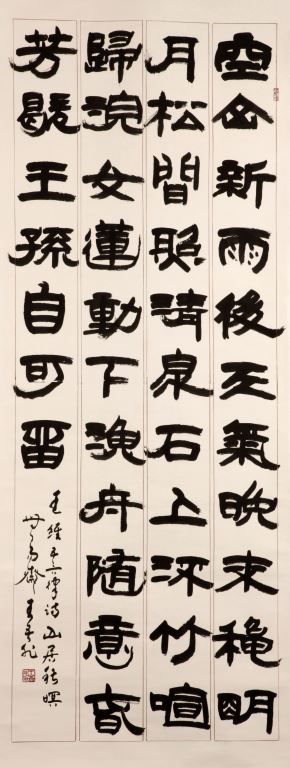 空山新雨後天氣晚来穐明
月松間照清泉石上流竹喧
歸浣女蓮動下漁舟随意春
芳歇王孫自可留
王維五言律詩山居秋暝